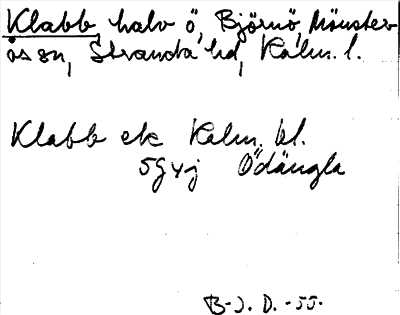 Klabb, halvö, Björnö, Mönster
ås sn, Stranda hd, Kalm. l.
Klabb ek Kalm. bl.
5g4j Ödängla
B-J. D. -55.